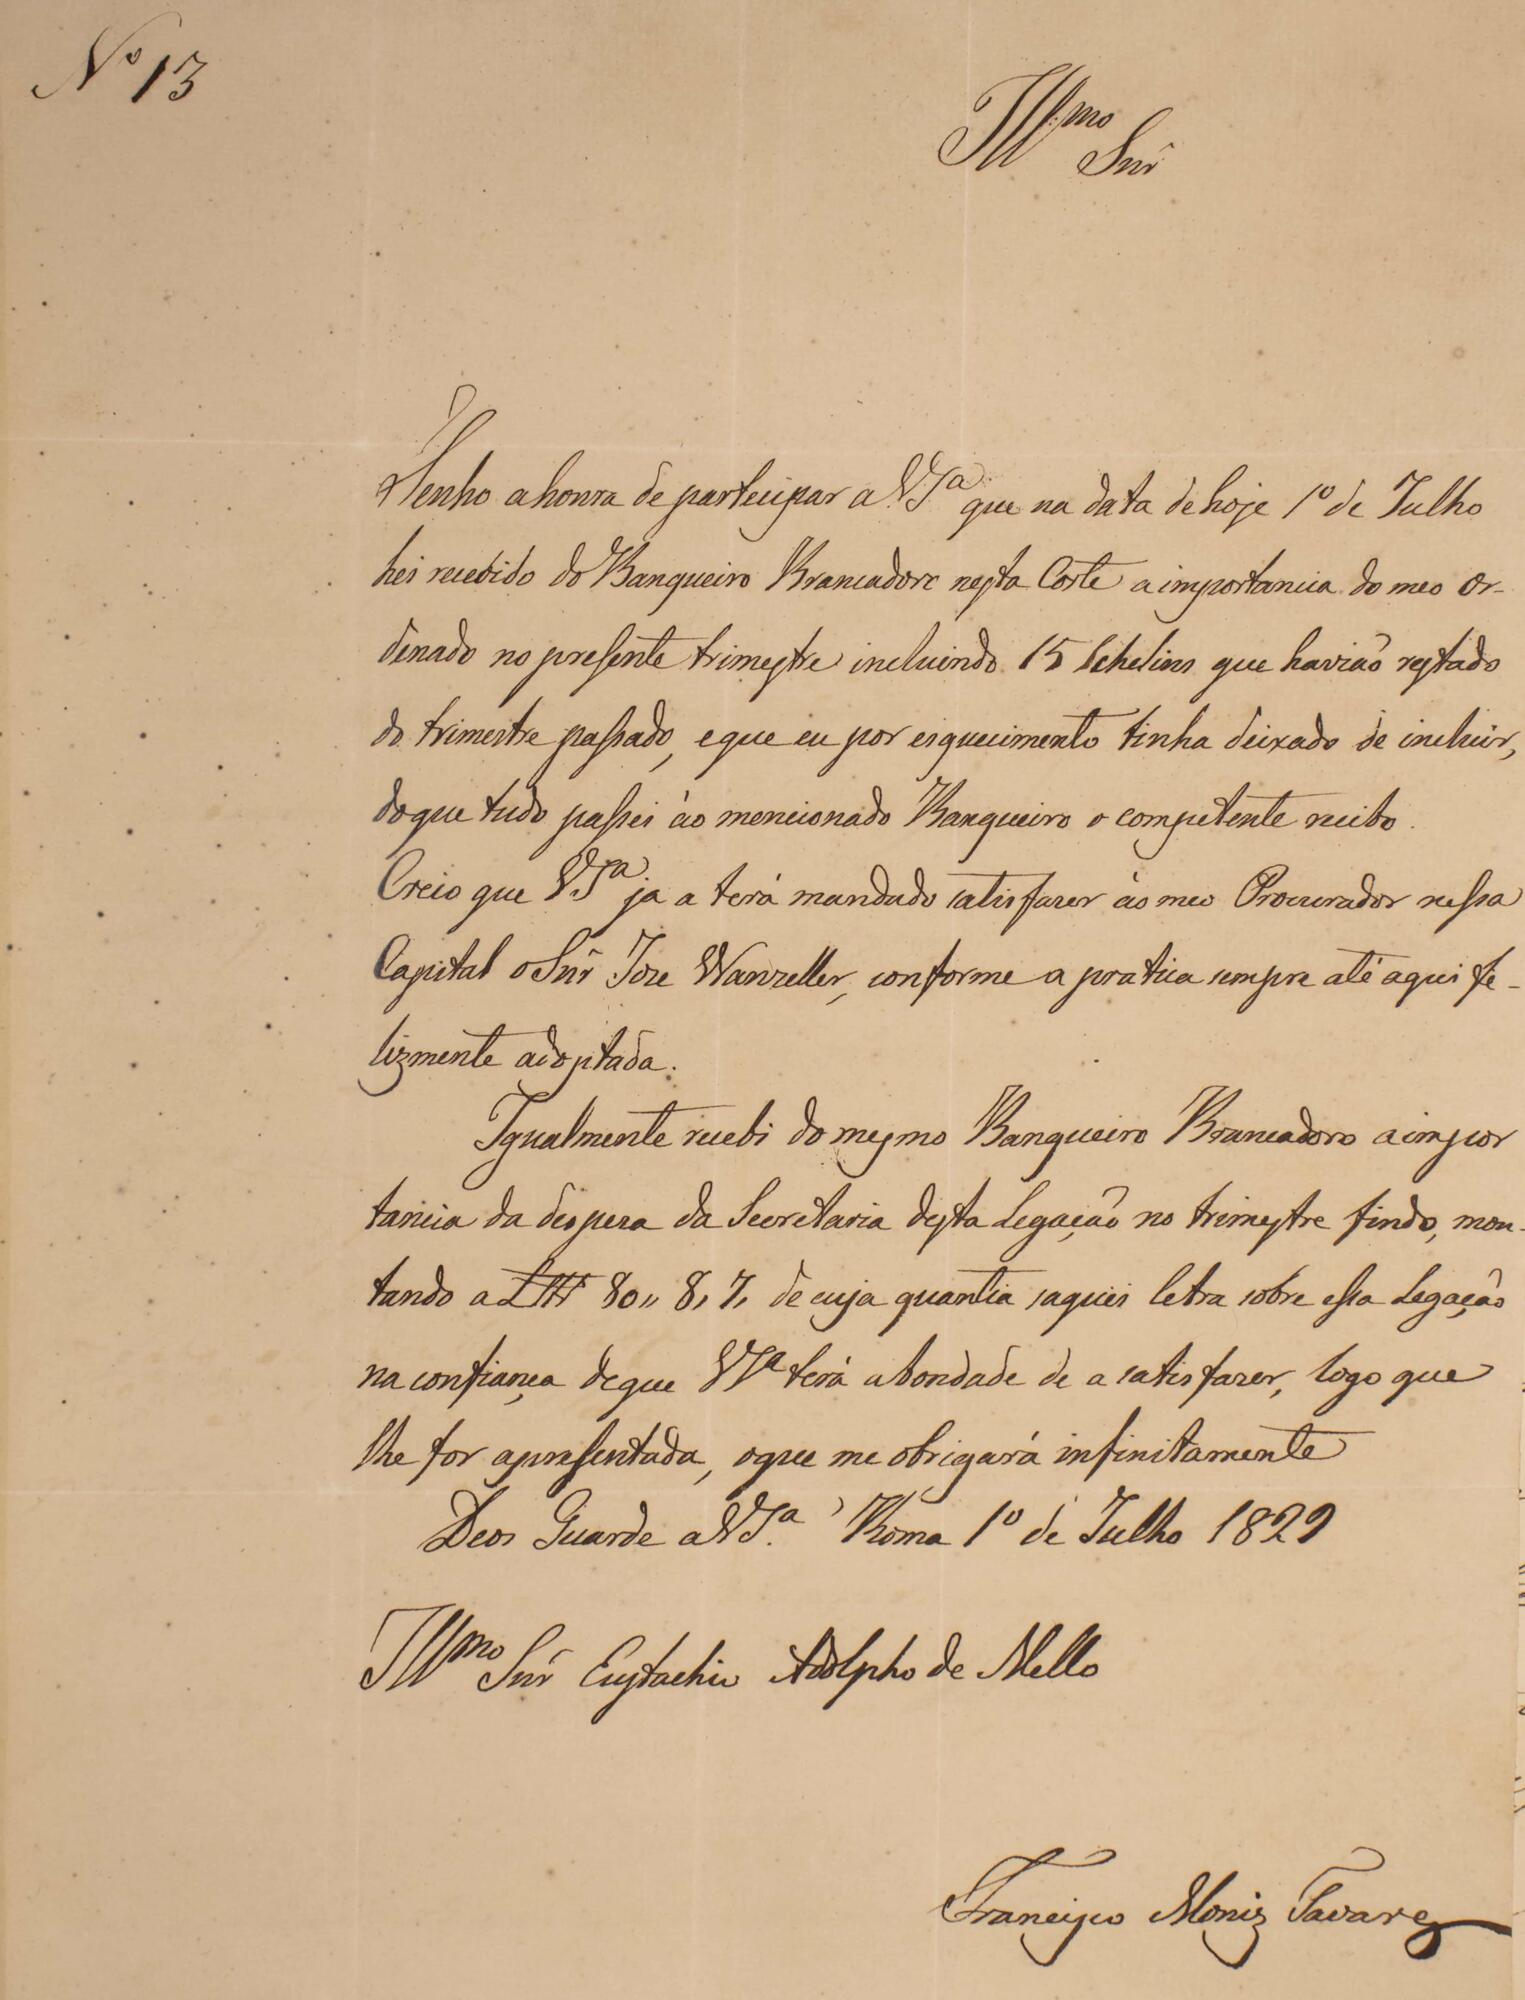 Nº 13
Illmo Snr̂
Tenho a honra de partecipar a V.Sª que na data de hoje 1º de Julho
hei recebido do Banqueiro Brancadoro nesta Corte a importancia do meo or-
denado no presente trimestre incluindo 15 Schelins que havião restado
do trimestre passado, e que eu por esquecimento tinha deixado de incluir,
do que tudo passei ào mencionado Banqueiro o competente recibo.
Creio que VSª ja a terá mandado satisfazer ào meo Procurador nessa
Capital o Snr̂ Joze Wanzeller, conforme a pratica sempre até aqui fe-
lizmente adoptada.
Igualmente recebi do mesmo Banqueiro Brancadoro a impor
tancia da despeza da Secretaria desta Legação no trimestre findo, mon-
tando a 80,, 8, 7, de cuja quantia saquei letra sobre essa Legação
na confiança de que VSª terá a bondade de a satisfazer, logo que
lhe for apresentada, o que me obrigará infinitamente
Deos Guarde a V.Sª. Roma 1º de Julho 1829
Illmo Snr̂ Eustachio Adolpho de Mello
Francisco Moniz Tavares